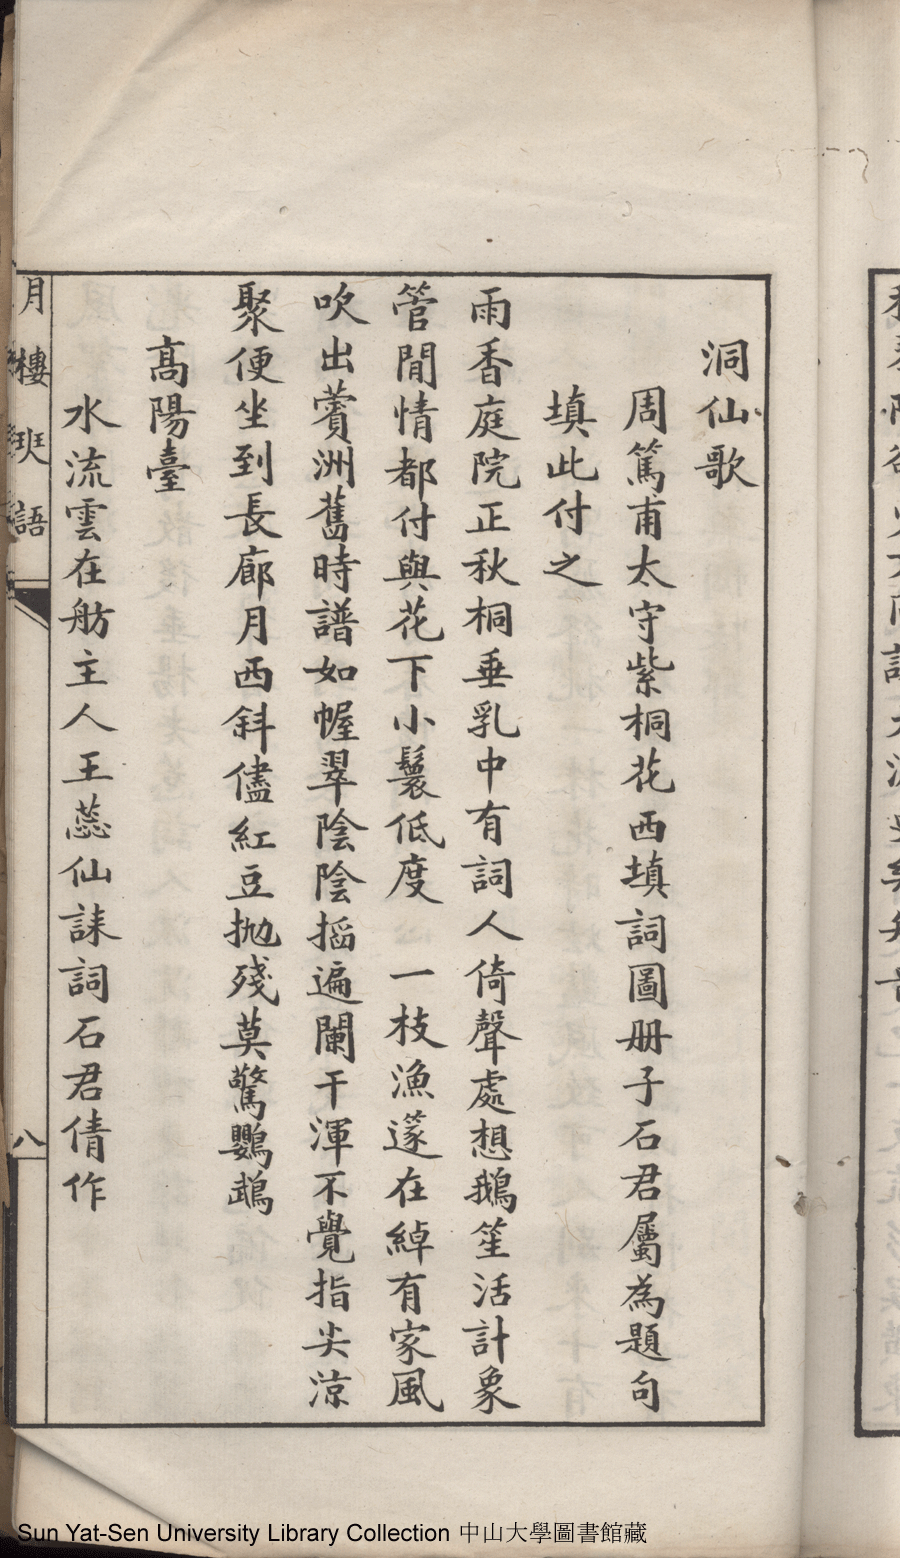 洞仙歌
周篤甫太守紫桐花西填詞圖册子石君屬為題句
填此付之
雨香庭院正秋桐垂乳中有詞人倚聲處想鵝笙活計象
管閒情都付與花下小鬟低度　一枝漁篴在綽有家風
吹出薲洲舊時譜如幄翠陰陰搯遍闌干渾不覺指尖涼
聚便坐到長廊月西斜儘紅豆抛殘莫驚鸚鵡
高陽臺
水流雲在舫主人王蕊仙誄詞石君倩作
月樓琖語
八
Sun Yat-Sen University Library Collection 中山大學圖書館藏